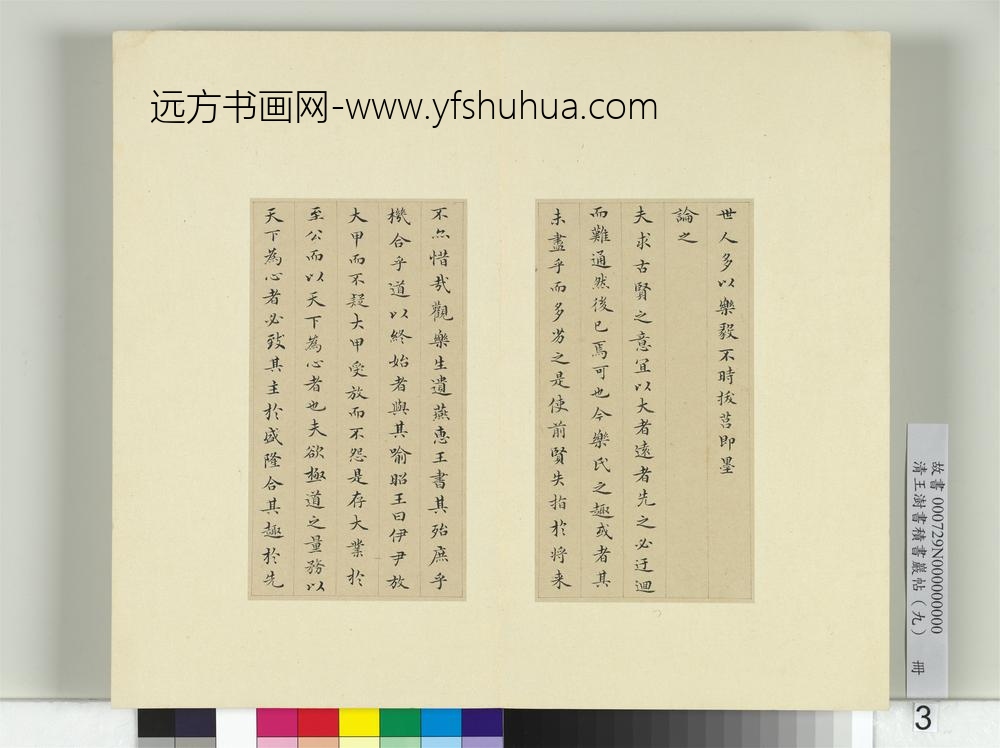 远方书画网-www.yfshuhua.com
世人多以樂毅不時拔莒即墨
論之
夫求古賢之意宜以大者遠者先之必迂迴
而難通然後已焉可也今樂氏之趣或者其
未盡乎而多劣之是使前賢失指於將来
不亦惜哉觀樂生遺燕惠王書其殆庶乎
機合乎道以終始者與其喻昭王曰伊尹放
大甲而不疑大甲受放而不怨是存大業於
至公而以天下為心者也夫欲極道之量務以
天下為心者必致其主於盛隆合其趣於先
故書 000729N000000000
清王澍書積書巖帖（九） 冊
3